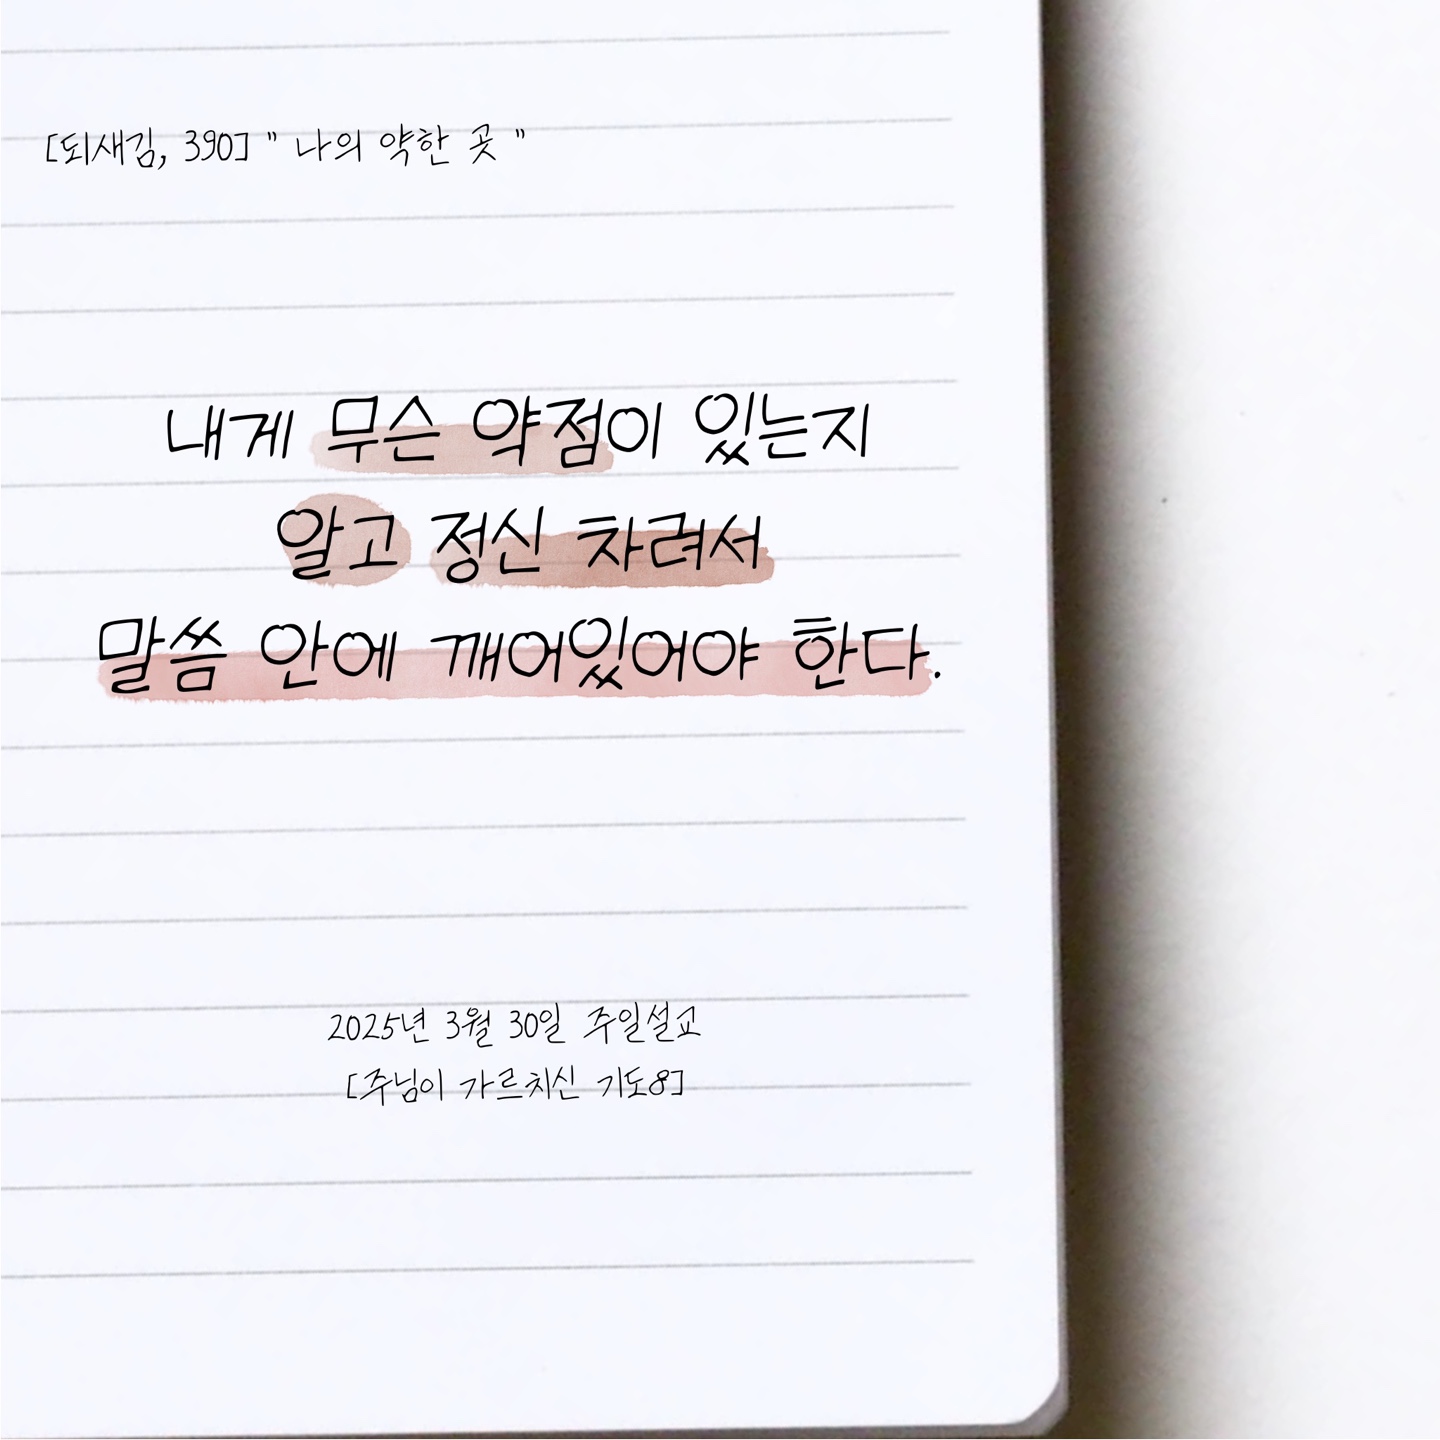 [되새김, 390] " 나의 약한 곳 "
내게 무슨 약점이 있는지
알고 정신 차려서
말씀 안에 깨어있어야 한다.
2025년 3월 30일 주일설교
[주님이 가르치신 기도8]